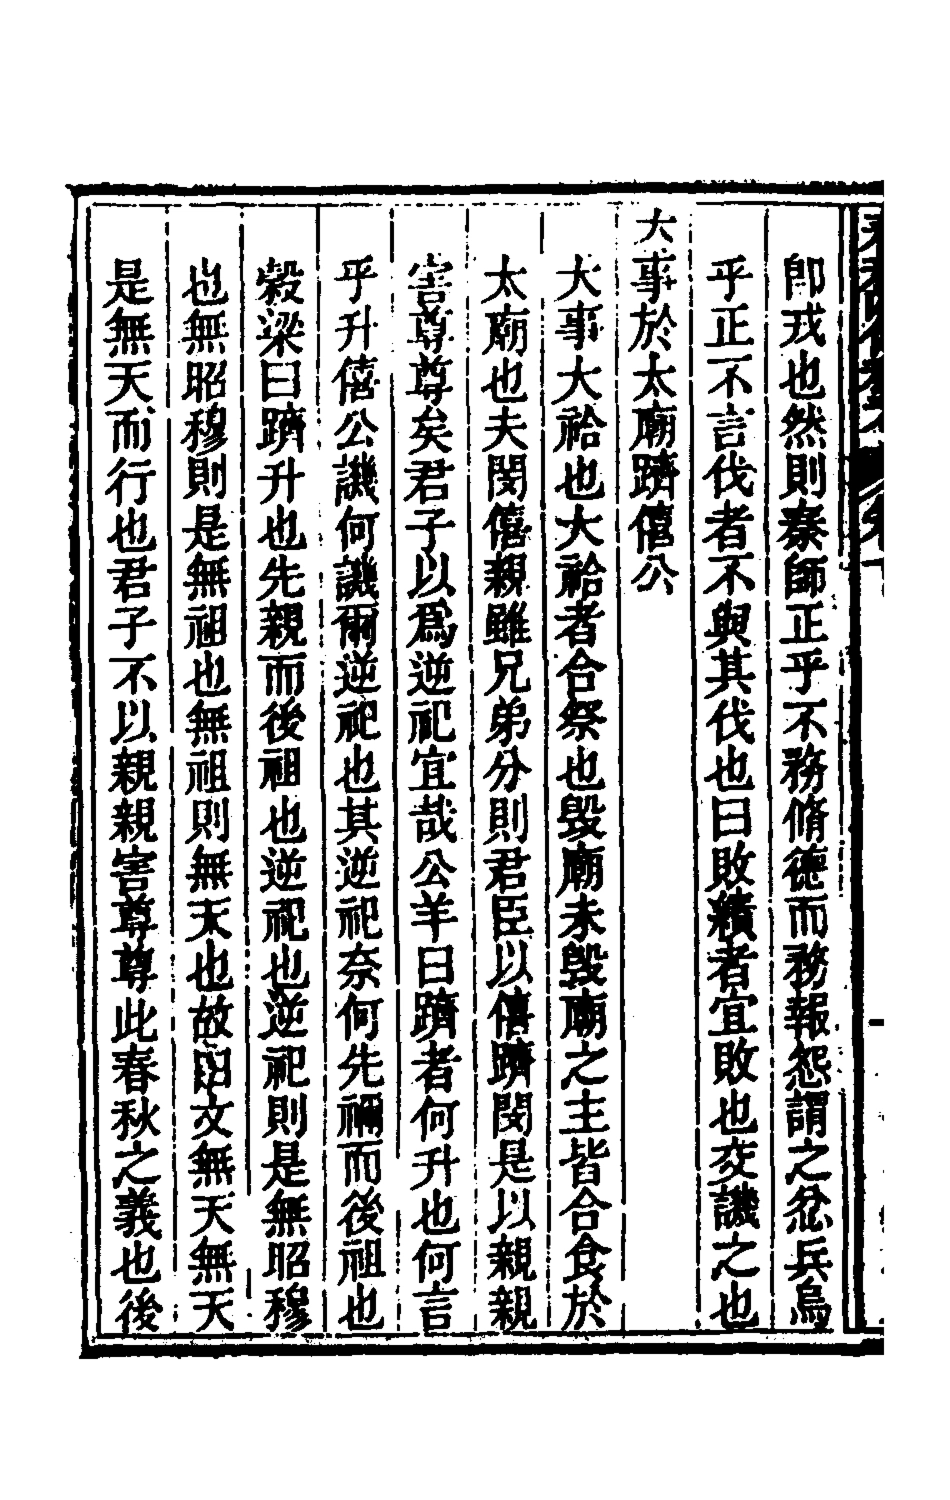 卽戎也然則秦師正乎不務脩德而務報怨謂之忿兵烏
乎正不言伐者不與其伐也曰敗績者宜敗也交譏之也
大事於太廟躋僖公
大事大祫也大祫者合祭也毁廟未毁廟之主皆合食於
太廟也夫閔僖親雖兄弟分則君臣以僖躋閔是以親親
害尊尊矣君子以爲逆祀宜哉公羊曰躋者何升也何言
乎升僖公譏何譏爾逆祀也其逆祀奈何先禰而後祖也
穀梁曰躋升也先親而後祖也逆祀也逆祀則是無昭穆
也無昭穆則是無祖也無祖則無天也故曰文無天無天
是無天而行也君子不以親親害尊尊此春秋之義也後